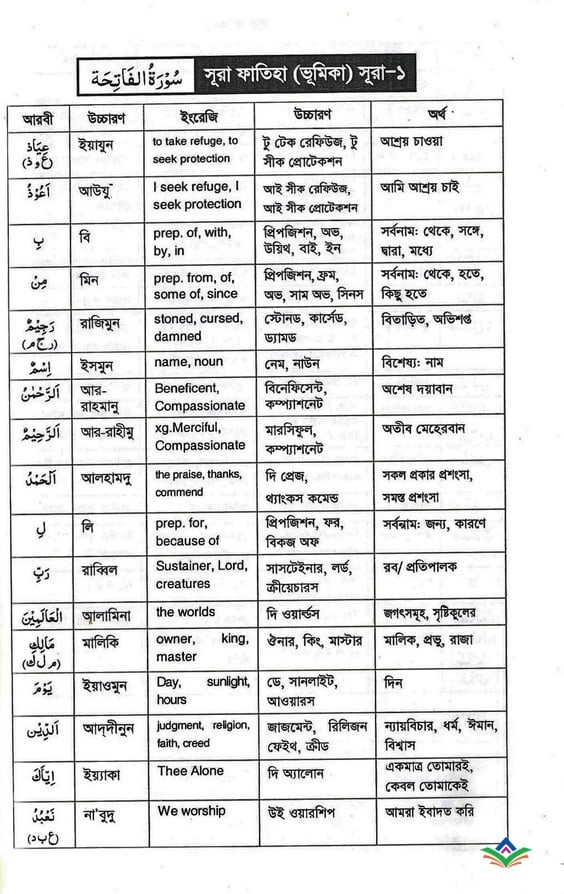 سُوْرَةُ الْفَاتِحَة সূরা ফাতিহা (ভূমিকা) সূরা-১
আরবী উচ্চারণ ইংরেজি উচ্চারণ অর্থ
عِيَاذٌ ইয়াযুন to take refuge, to টু টেক রেফিউজ, টু আশ্রয় চাওয়া
(ع و ذ) seek protection সীক প্রোটেকশন
اَعُوْذُ আউযু I seek refuge, I আই সীক রেফিউজ, আমি আশ্রয় চাই
seek protection আই সীক প্রোটেকশন
بِ বি prep. of, with, প্রিপজিশন, অভ, সর্বনাম: থেকে, সঙ্গে,
by, in উয়িথ, বাই, ইন দ্বারা, মধ্যে
مِنْ মিন prep. from, of, প্রিপজিশন, ফ্রম, সর্বনাম: থেকে, হতে,
some of, since অভ, সাম অভ, সিনস কিছু হতে
رَجِيْمٌ রাজিমুন stoned, cursed, স্টোনড, কার্সেড, বিতাড়িত, অভিশপ্ত
(ر ج م) damned ড্যামড
اِسْمٌ ইসমুন name, noun নেম, নাউন বিশেষ্য: নাম
اَلرَّحْمٰنُ আর- Beneficent, বিনেফিসেন্ট, অশেষ দয়াবান
রাহমানু Compassionate কম্প্যাশনেট
اَلرَّحِيْمُ আর-রাহীমু xg.Merciful, মারসিফুল, অতীব মেহেরবান
Compassionate কম্প্যাশনেট
اَلْحَمْدُ আলহামদু the praise, thanks, দি প্রেজ, সকল প্রকার প্রশংসা,
commend থ্যাংকস কমেন্ড সমস্ত প্রশংসা
لِ লি prep. for, প্রিপজিশন, ফর, সর্বনাম: জন্য, কারণে
because of বিকজ অফ
رَبِّ রাব্বিল Sustainer, Lord, সাসটেইনার, লর্ড, রব/ প্রতিপালক
creatures ক্রীয়েচারস
الْعَالَمِيْنَ আলামিনা the worlds দি ওয়ার্ল্ডস জগৎসমূহ, সৃষ্টিকুলের
مَالِكِ মালিকি owner, king, ঔনার, কিং, মাস্টার মালিক, প্রভু, রাজা
(م ل ك) master
يَوْمَ ইয়াওমুন Day, sunlight, ডে, সানলাইট, দিন
hours আওয়ারস
اَلدِّيْنِ আদ্দীনুন judgment, religion, জাজমেন্ট, রিলিজন ন্যায়বিচার, ধর্ম, ঈমান,
faith, creed ফেইথ, ক্রীড বিশ্বাস
اِيَّاكَ ইয়্যাকা Thee Alone দি অ্যালোন একমাত্র তোমারই,
কেবল তোমাকেই
نَعْبُدُ না'বুদু We worship উই ওয়ারশিপ আমরা ইবাদত করি
(ع ب د)